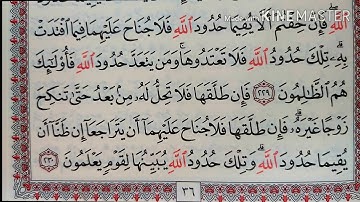 Made with
KINEMASTER
ٱللَّهِ فَإِنْ خِفْتُمْ أَلَّا يُقِيمَا حُدُودَ ٱللَّهِ فَلَا جُنَاحَ عَلَيْهِمَا فِيمَا ٱفْتَدَتْ
بِهِۦۗ تِلْكَ حُدُودُ ٱللَّهِ فَلَا تَعْتَدُوهَاۚ وَمَن يَتَعَدَّ حُدُودَ ٱللَّهِ فَأُو۟لَـٰٓئِكَ
هُمُ ٱلظَّـٰلِمُونَ ٢٢٩ فَإِن طَلَّقَهَا فَلَا تَحِلُّ لَهُۥ مِنۢ بَعْدُ حَتَّىٰ تَنكِحَ
زَوْجًا غَيْرَهُۥۗ فَإِن طَلَّقَهَا فَلَا جُنَاحَ عَلَيْهِمَآ أَن يَتَرَاجَعَآ إِن ظَنَّآ أَن
يُقِيمَا حُدُودَ ٱللَّهِۗ وَتِلْكَ حُدُودُ ٱللَّهِ يُبَيِّنُهَا لِقَوْمٍ يَعْلَمُونَ ٢٣٠
٣٦